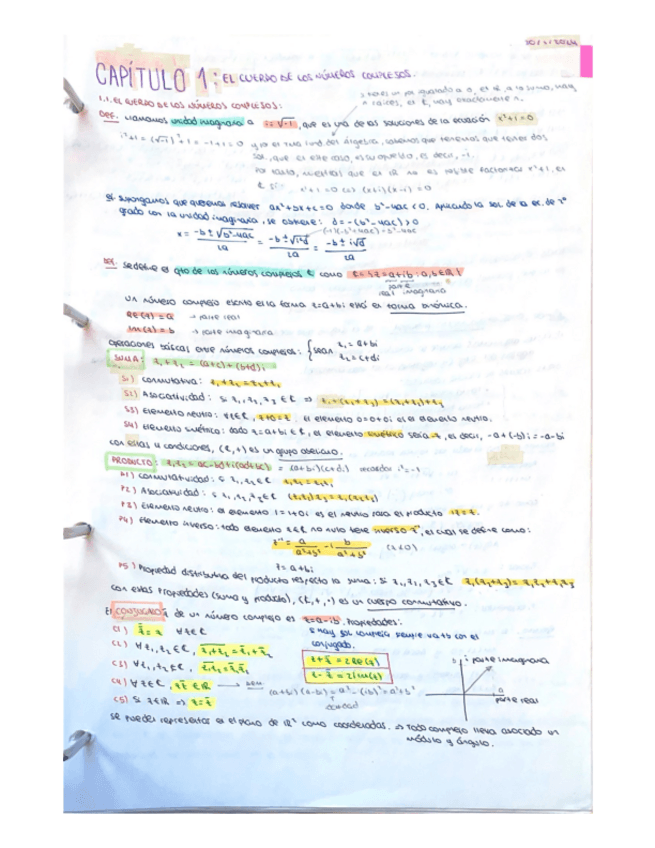 CAPÍTULO 1: EL CUERPO DE LOS NÚMEROS COMPLEJOS.
1.1. EL CUERPO DE LOS NÚMEROS COMPLEJOS:
DEF. Llamamos unidad imaginaria a i=√-1, que es una de las soluciones de la ecuación x²+1=0
i²+1 = (√-1)²+1 = -1+1=0
álgebra, sabemos que tenemos que tener dos
sol, que en este caso, es su opuesto, es decir, -i.
x²+1=0 ⇔ (x+i)(x-i)=0
Si supongamos que queremos resolver ax²+bx+c=0 donde b²-4ac<0. Aplicando la sol. de la ec. de 2º
grado con la unidad imaginaria, se obtiene: d=-(b²-4ac)>0
x = -b±√b²-4ac / 2a = -b±√i²d / 2a = -b±i√d / 2a
DEF. Se define el cjto de los números complejos ℂ como ℂ={z=a+ib : a,b∈ℝ}
parte
real imaginaria
Un número complejo escrito en la forma z=a+bi está en forma binómica.
Re(z)=a → parte real
Im(z)=b → parte imaginaria
Operaciones básicas entre números complejos: { sean z₁=a+bi
z₂=c+di
SUMA: z₁+z₂=(a+c)+(b+d)i
S1) Conmutativa: z₁+z₂=z₂+z₁
S2) Asociatividad: Si z₁,z₂,z₃∈ℂ ⇒ z₁+(z₂+z₃)=(z₁+z₂)+z₃
S3) Elemento neutro: ∀z∈ℂ, z+0=z. El elemento 0=0+0i es el elemento neutro.
S4) Elemento simétrico: dado z=a+bi∈ℂ, el elemento simétrico sería -z, es decir, -a+(-b)i=-a-bi
con estas 4 condiciones, (ℂ,+) es un grupo abeliano.
PRODUCTO: z₁z₂=ac-bd+i(ad+bc) = (a+bi)(c+di) recordar i²=-1
P1) Conmutatividad: Si z₁,z₂∈ℂ z₁z₂=z₂z₁
P2) Asociatividad: Si z₁,z₂,z₃∈ℂ (z₁z₂)z₃=z₁(z₂z₃)
P3) Elemento neutro: el elemento 1=1+0i es el neutro para el producto 1z=z.
P4) Elemento inverso: todo elemento z∈ℂ no nulo tiene inverso z⁻¹, el cual se define como:
z⁻¹ = a/a²+b² - i b/a²+b² (z≠0)
z=a+bi
P5) Propiedad distributiva del producto respecto la suma: Si z₁,z₂,z₃∈ℂ z₁(z₂+z₃)=z₁z₂+z₁z₃
Con estas propiedades (suma y producto), (ℂ,+,·) es un cuerpo conmutativo.
El CONJUGADO z̄ de un número complejo es z̄=a-ib. Propiedades:
C1) z̿=z ∀z∈ℂ
C2) ∀z₁,z₂∈ℂ, z̅₁+̅z̅₂=z̄₁+z̄₂
C3) ∀z₁,z₂∈ℂ, z̅₁z̅₂=z̄₁z̄₂
C4) ∀z∈ℂ, zz̄∈ℝ
C5) Si z∈ℝ ⇒ z=z̄
Si hay sol compleja siempre va atb con el
conjugado.
z+z̄=2Re(z)
z-z̄=2iIm(z)
(a+bi)(a-bi)=a²-(ib)²=a²+b²
parte imaginaria
parte real
Se pueden representar en el plano de ℝ² como coordenadas. ⇒ Todo complejo lleva asociado un
módulo y ángulo.